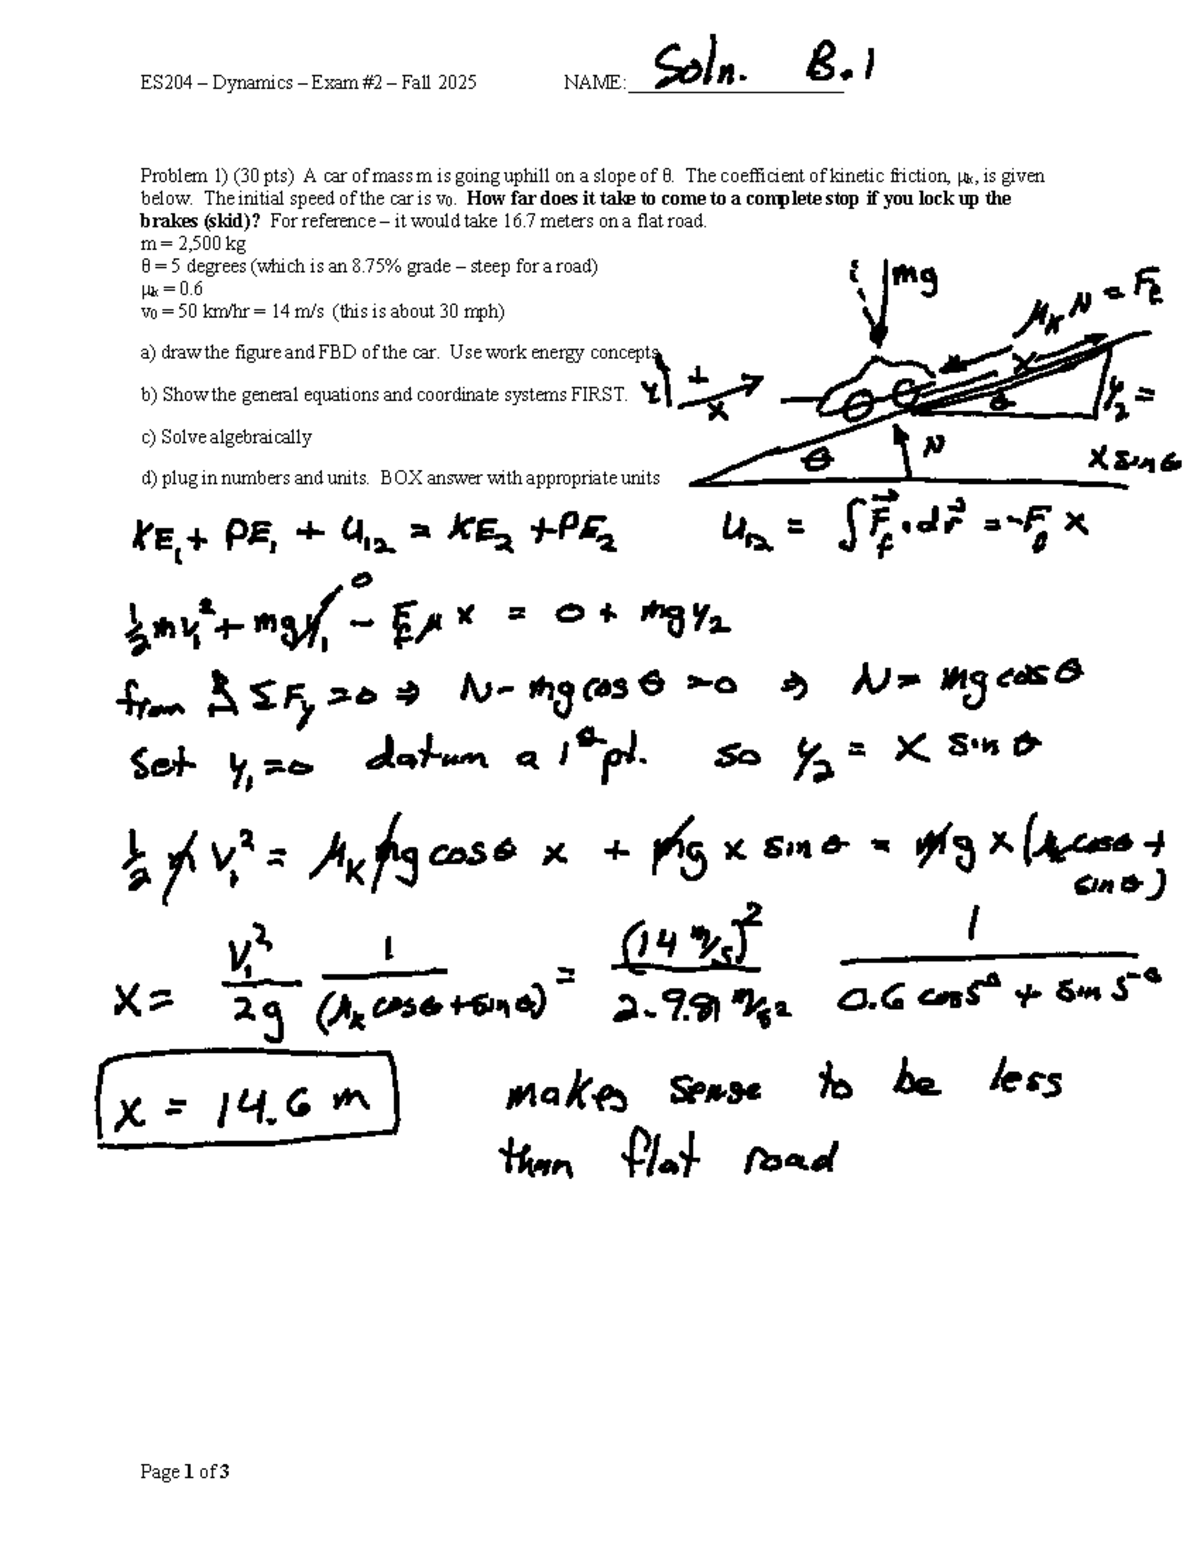 ES204 – Dynamics – Exam #2 – Fall 2025 NAME: Soln. B.1
Problem 1) (30 pts) A car of mass m is going uphill on a slope of θ. The coefficient of kinetic friction, μk, is given
below. The initial speed of the car is v0. How far does it take to come to a complete stop if you lock up the
brakes (skid)? For reference – it would take 16.7 meters on a flat road.
m = 2,500 kg
θ = 5 degrees (which is an 8.75% grade – steep for a road)
μk = 0.6
v0 = 50 km/hr = 14 m/s (this is about 30 mph)
a) draw the figure and FBD of the car. Use work energy concepts
b) Show the general equations and coordinate systems FIRST.
c) Solve algebraically
d) plug in numbers and units. BOX answer with appropriate units
mg
μk N = Ff
y + x
x
θ
y2 =
x sin θ
θ
N
KE1 + PE1 + U12 = KE2 + PE2
U12 = ∫ Ff · dr = -Ff x
1/2 m v1² + mg y1 0 - Ff x = 0 + mg y2
from ΣFy = 0 ⇒ N - mg cos θ = 0 ⇒ N = mg cos θ
Set y1 = 0 datum a 1 pt. so y2 = x sin θ
1/2 m v1² = μk mg cos θ x + mg x sin θ = mg x (μk cos θ + sin θ)
x = v1²/2g 1/(μk cos θ + sin θ) = (14 m/s)²/2·9.81 m/s² 1/0.6 cos 5° + sin 5°
x = 14.6 m
makes sense to be less
than flat road
Page 1 of 3